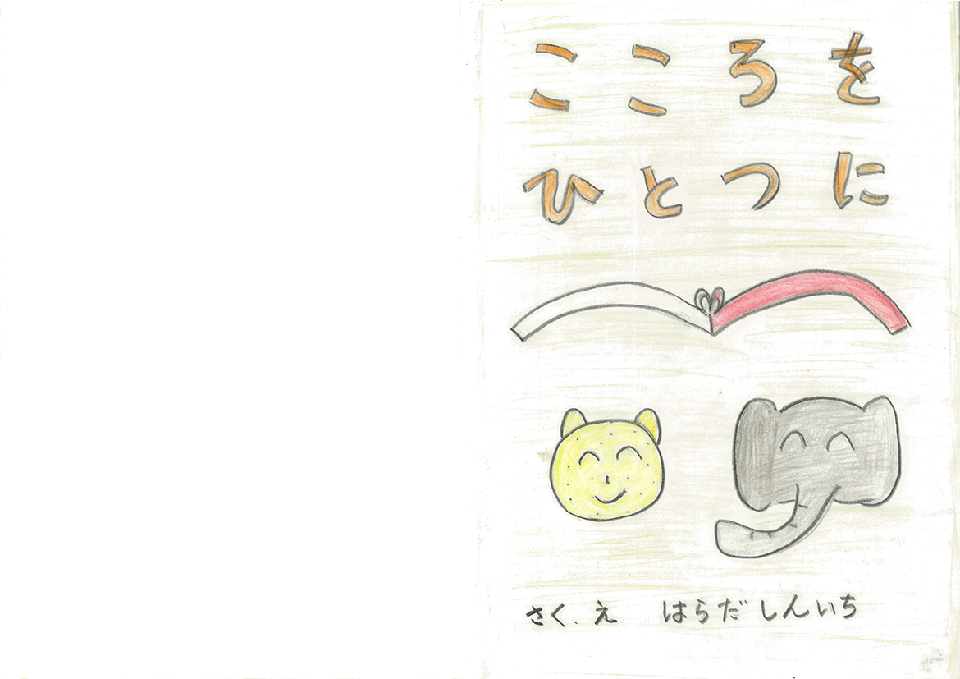 こころを
ひとつに
さく、え　はらだしんいち